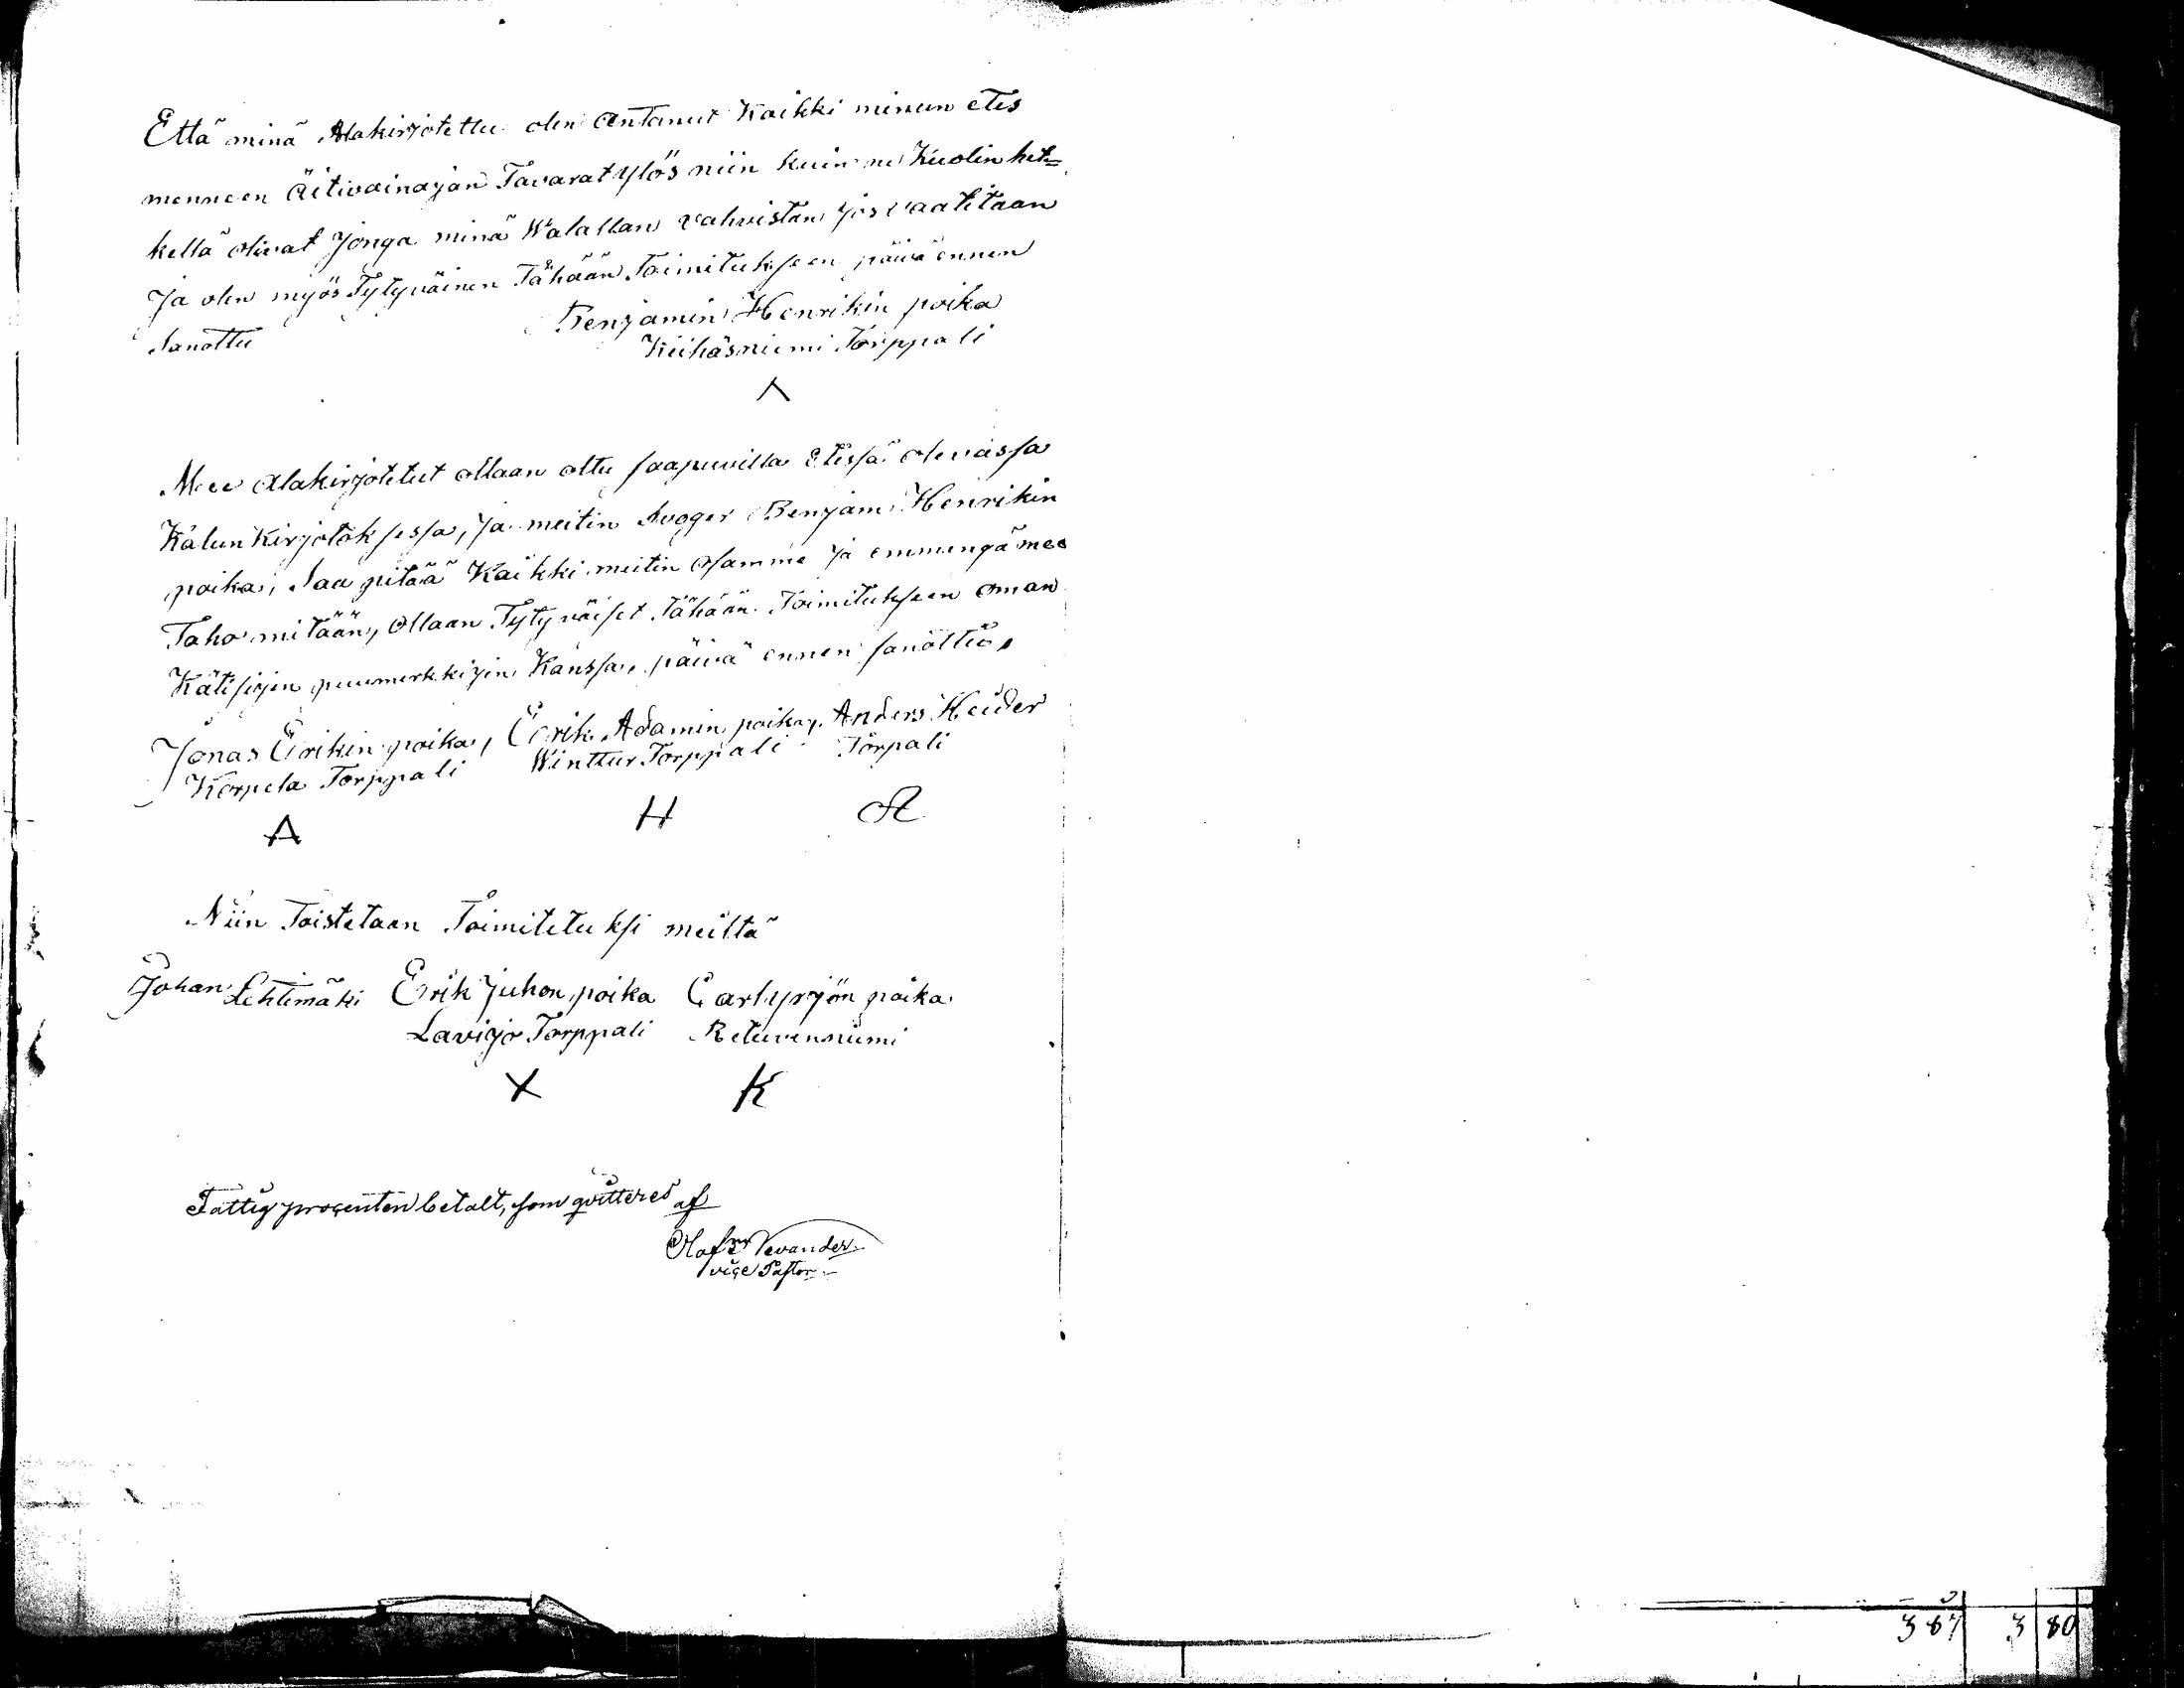 Että minä Alakirjotettu olen antanut Kaikki minun etes
menneen äitivainajan Tavarat ylös niin kuin ne Kuolin het=
kellä olivat Jonga minä Walallan vahvistan jos vaatitaan
Ja olen myös Tytyväinen Tähään Toimitukseen päivä ennen
Sanottu
Benjamin Henrikin poika
Kiihäsniemi Torppali
Mee alakirjotetut ollaan oltu saapuvilla etessä olevassa
Kalun Kirjotoksessa, ja meitin Svoger Benjam Henrikin
poika, Saa pitää Kaikki meitin osamme ja emmengä mee
Taho mitään, ollaan Tytyväiset Tähään Toimitukseen oman
Kätisijen puumerkkijen Kanssa, päivä ennen sanottu,
Jonas Erikin poika, Erik Adamin poika, Anders Heider
Korpela Torppali Winttur Torppali Torpali
A H A
Niin Toistetaan Toimitetuksi meiltä
Johan Lehtimäki Erik Juhon poika Carl yrjön poika
Lavijo Torppali Retuvenniemi
X K
Fattig procenten betalt, som qvitteres af
Olof Vevander
vice Pastor
387 3 80